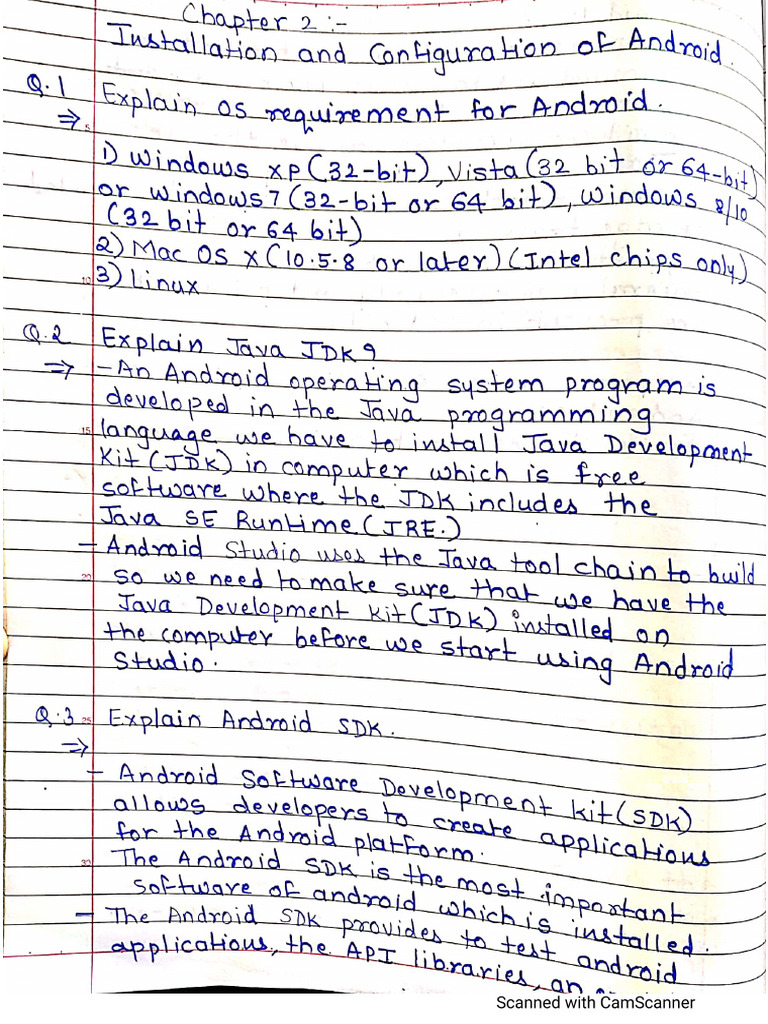 Chapter 2 :-
Installation and Configuration of Android.
Q.1 Explain OS requirement for Android.
⇒
1) Windows XP (32-bit), Vista (32 bit or 64-bit)
or windows 7 (32-bit or 64 bit), Windows 8/10
(32 bit or 64 bit)
2) Mac OS X (10.5.8 or later) (Intel chips only)
3) Linux
Q.2 Explain Java JDK 9
⇒ - An Android operating system program is
developed in the Java programming
language we have to install Java Development
Kit (JDK) in computer which is free
software where the JDK includes the
Java SE Runtime (JRE.)
- Android Studio uses the Java tool chain to build
so we need to make sure that we have the
Java Development Kit (JDK) installed on
the computer before we start using Android
Studio.
Q.3 Explain Android SDK.
⇒
- Android Software Development Kit (SDK)
allows developers to create applications
for the Android platform.
The Android SDK is the most important
software of android which is installed.
- The Android SDK provides to test android
applications, the API libraries, an
Scanned with CamScanner